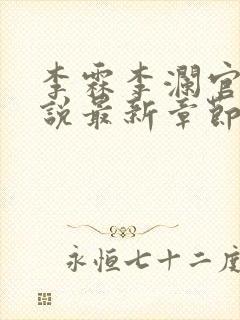 李霖李澜官
说最新章節
永恒七十二度